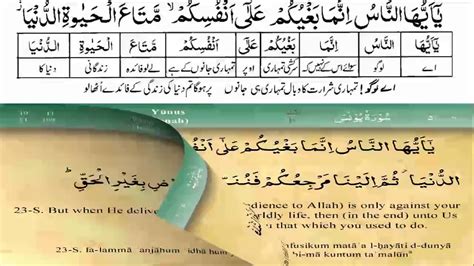 يٰٓاَيُّهَا النَّاسُ اِنَّمَا بَغْيُكُمْ عَلٰٓى اَنْفُسِكُمْ ۙ مَّتَاعَ الْحَيٰوةِ الدُّنْيَا
يٰٓاَيُّهَا النَّاسُ اِنَّمَا بَغْيُكُمْ عَلٰٓى اَنْفُسِكُمْ مَّتَاعَ الْحَيٰوةِ الدُّنْيَا
اے لوگو سوائے اس کے نہیں کہ سرکشی تمہاری اوپر تمہاری جانوں کے ہے لو فائدہ زندگانی دنیا کا
اے لوگو! تمہاری شرارت کا وبال تمہاری ہی جانوں پر ہوگا تم دنیا کی زندگی کے فائدے اُٹھا لو
Yūnus
سُوْرَةُ يُوْنُسَ
يٰٓاَيُّهَا النَّاسُ اِنَّمَا بَغْيُكُمْ عَلٰٓى اَنْفُسِ
الدُّنْيَا ۫ ثُمَّ اِلَيْنَا مَرْجِعُكُمْ فَنُنَ
ضِ بِغَيْرِ الْحَقِّ ؕ
dience to Allah) is only against your
23-S. But when He delive
ldly life, then (in the end) unto Us
that which you used to do.
23-S. fa-lammā anjāhum idhā hum
fusikum matā'a l-ḥayāti d-dunyā
bi-mā kuntum ta'malūn